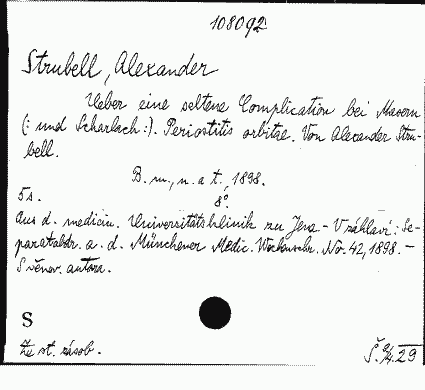 108092
Strubell, Alexander
Ueber eine seltene Complication bei Masern
(: und Scharlach :). Periostitis orbitae. Von Alexander Stru-
bell.
B. m., n. a t., 1898.
5 s. 8°.
Aus d. medicin. Universitätsklinik zu Jena - V záhlaví: Se-
paratabdr. a. d. Münchener Medic. Wochenschr. No. 42, 1898. -
S věnov. autora.
S
Ze st. zásob.
Š. 9/4.29